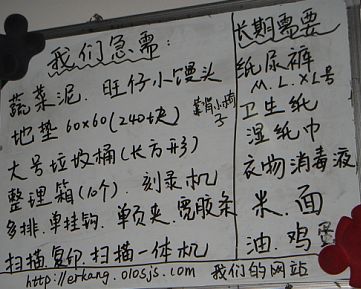 我们急需：
蔬菜泥．旺仔小馒头
地垫60x60(240块)
大号垃圾桶(长方形)
整理箱(10个)．刻录机
多排．单挂钩．单页夹．宽胶条
扫描复印．扫描一体机
http://erkang.olosjs.com 我们的网站
长期需要
纸尿裤
M．L．XL号
卫生纸
湿纸巾
衣物消毒液
米．面
油．鸡蛋